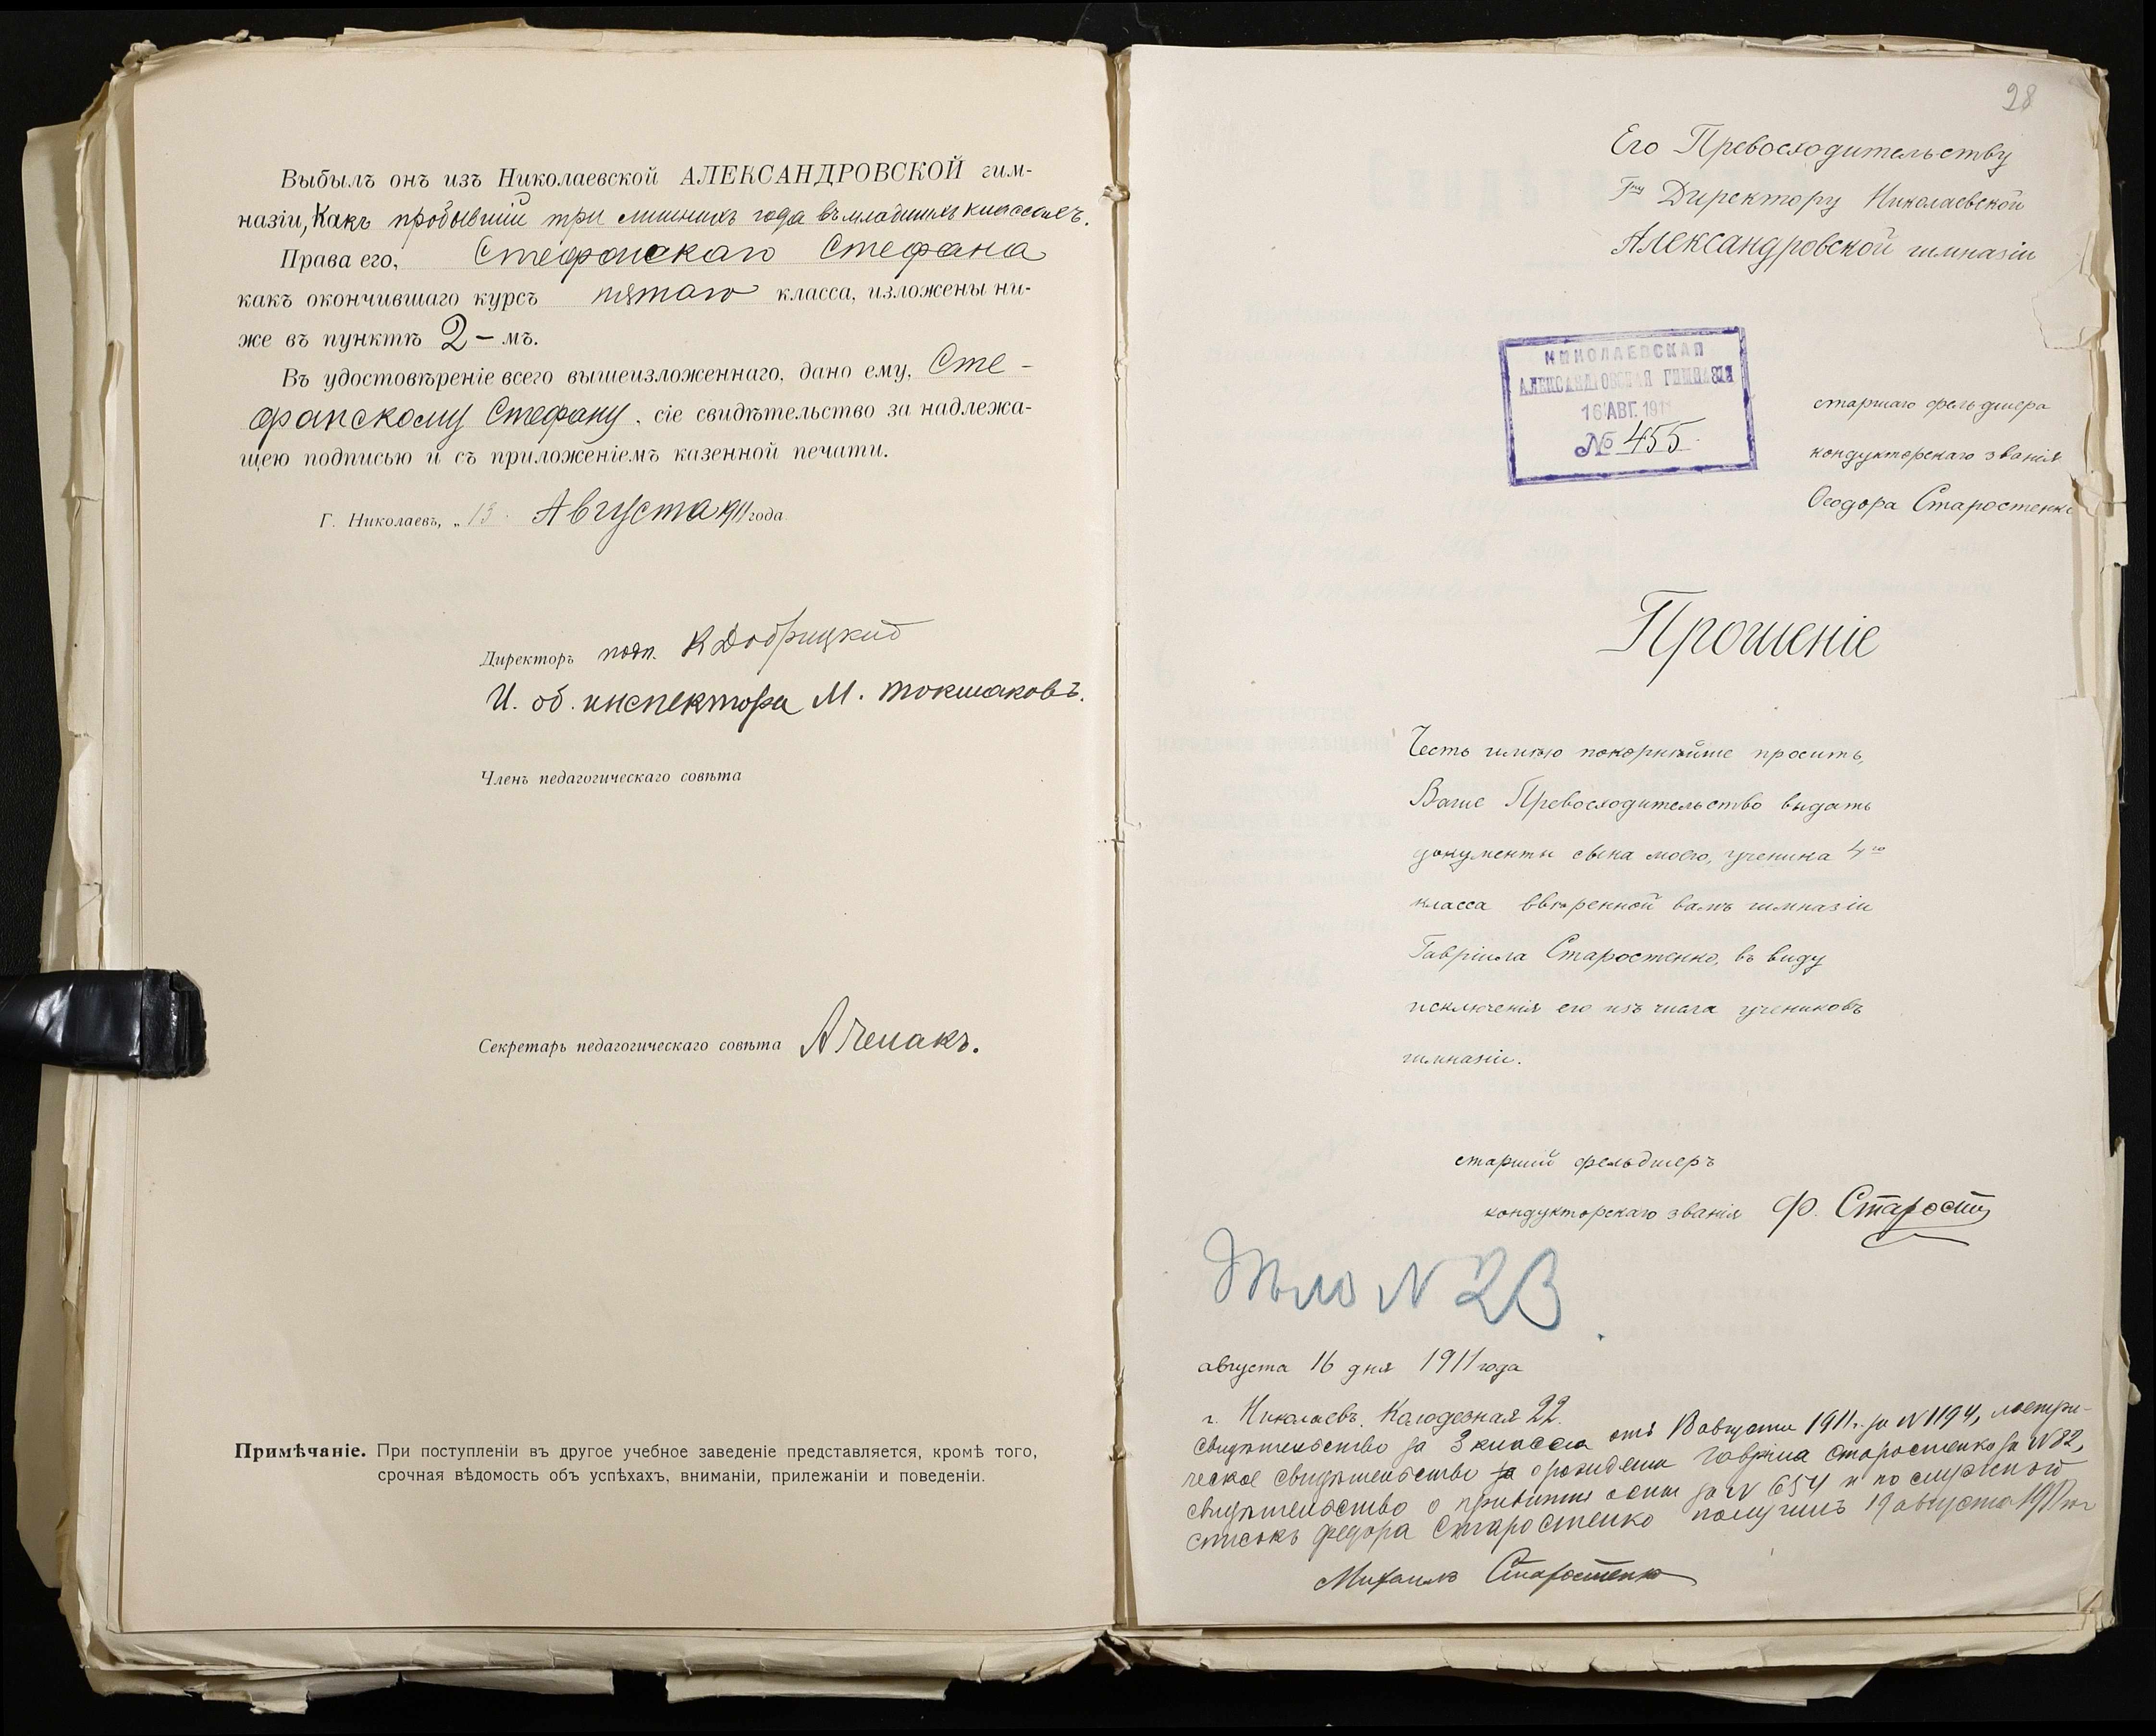 Выбылъ онъ изъ Николаевской АЛЕКСАНДРОВСКОЙ гим-
назіи, Какъ пробывшій три лишнихъ года въ младшихъ классахъ.
Права его, Стефанскаго Стефана
какъ окончившаго курсъ пятаго класса, изложены ни-
же въ пунктѣ 2-мъ.
Въ удостовѣреніе всего вышеизложеннаго, дано ему, Сте-
фанскому Стефану, сіе свидѣтельство за надлежа-
щею подписью и съ приложеніемъ казенной печати.
Г. Николаевъ, „13 Августа 1911 года
Директоръ подп. К Добрицкій
И. об. инспектора М. Токмаковъ.
Членъ педагогическаго совѣта
Секретарь педагогическаго совѣта
Примѣчаніе. При поступленіи въ другое учебное заведеніе представляется, кромѣ того,
срочная вѣдомость объ успѣхахъ, вниманіи, прилежаніи и поведеніи.
28
Его Превосходительству
Гну Директору Николаевской
Александровской гимназіи
НИКОЛАЕВСКАЯ
АЛЕКСАНДРОВСКАЯ ГИМНАЗІЯ
16 АВГ. 1911
№ 455
старшаго фельдшера
кондукторскаго званія
Ѳеодора Старостенко
Прошеніе
Честь имѣю покорнѣйше просить,
Ваше Превосходительство выдать
документы сына моего, ученика 4го
класса ввѣренной вамъ гимназіи
Гавріила Старостенко, въ виду
исключенія его изъ числа учениковъ
гимназіи.
старшій фельдшеръ
кондукторскаго званія Ф. Старост
Дѣло N 23
августа 16 дня 1911 года
г. Николаевъ. Колодезная 22.
Свидѣтельство за 3 класса отъ 13 августа 1911 г. за N 1194, метри-
ческое свидѣтельство о рожденіи Гавріила Старостенко за N 82,
свидѣтельство о привитіи оспы за N 654 и послужной
списокъ Федора Старостенко получилъ 19 августа 1911 г
Михаилъ Старостенко